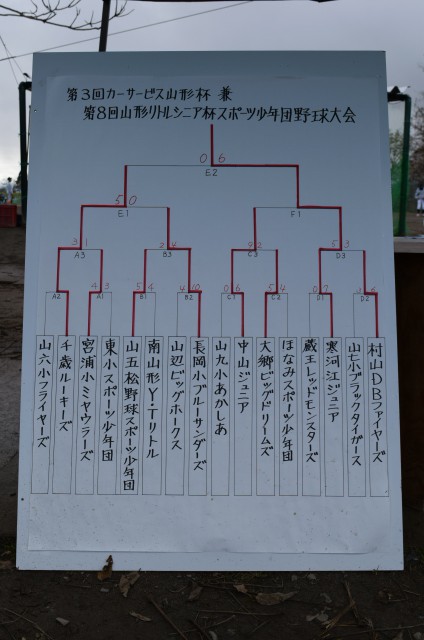 第3回カーサービス山形杯 兼
第8回山形リトルシニア杯スポーツ少年団野球大会
0 6
E2
5 0
E1
F1
3 1
A3
2 4
B3
9 2
C3
5 3
D3
A2
4 3
A1
5 4
B1
4 10
B2
C1
5 4
C2
0 7
D1
D2
山六小フライヤーズ
千歳ルーキーズ
宮浦小ミヤウラーズ
東小スポーツ少年団
山五松野球スポーツ少年団
南山形Y・Tリトル
山辺ビッグホークス
長岡小ブルーサンダーズ
山九小あかしあ
中山ジュニア
大郷ビッグドリームズ
ほなみスポーツ少年団
蔵王レッドモンスターズ
寒河江ジュニア
山七小ブラックタイガース
村山DBファイヤーズ